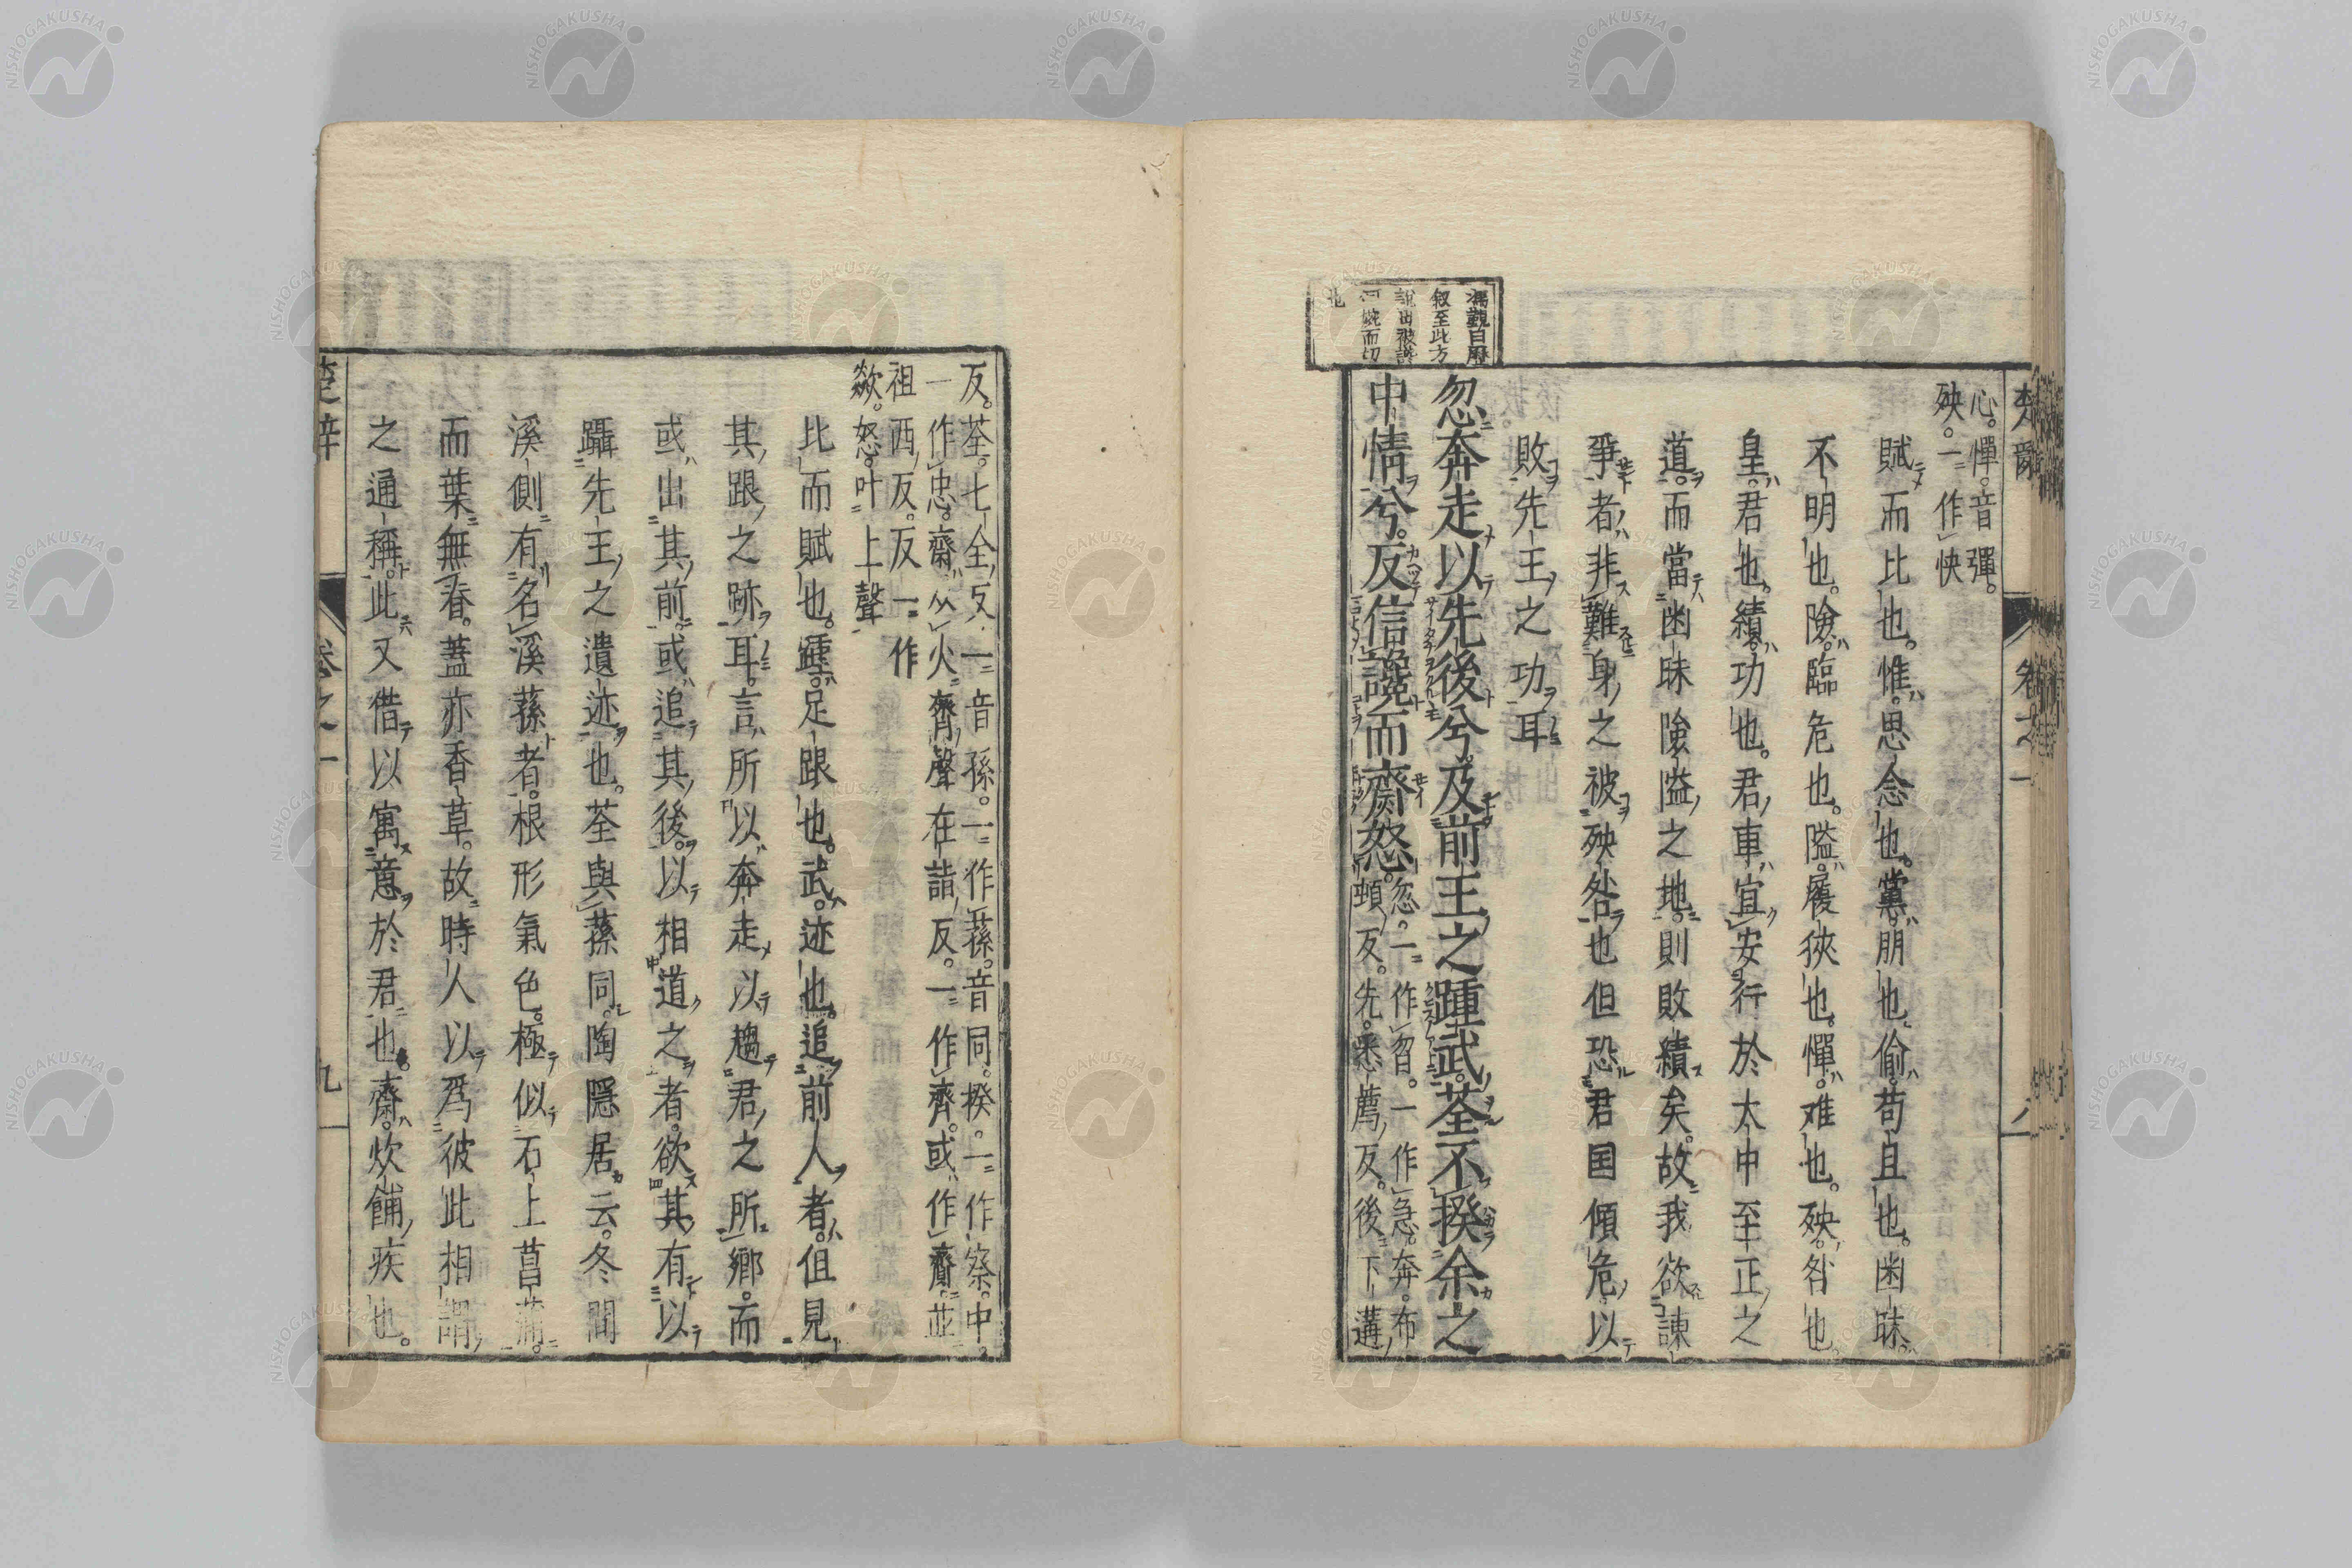 楚辭
卷之一
八
心。憚。音彈。
殃。一作快
賦而比也。惟。思念也。黨。朋也。偷。苟且也。幽昧。
不明也。險。臨危也。隘。履狹也。憚。难也。殃。咎也。
皇。君也。績。功也。君車宜安行於大中至正之
道。而當幽昧險隘之地。則敗績矣。故我欲諫
爭者。非難身之被殃咎也。但恐君国傾危。以
敗先王之功耳
馮覲曰歷
叙至此方
說出被讒
忽奔走以先後兮。及前王之踵武。荃不揆余之
中情兮。反信讒而齌怒。忽。一作曶。一作急。奔。布
頓反。先。悉薦反。後。下遘
反。荃。七全反。一音孫。一作蓀。音同。揆。一作察。中。
一作忠。齌。从火齊聲。在詣反。一作齊。或作齎。並
祖西反。反。一作
歘。怒。叶上聲
比而賦也。踵。足跟也。武。迹也。追前人者。但見
其跟之跡耳。言所以奔走以趨君之所鄉。而
或出其前。或追其後。以相道之者。欲其有以
躡先王之遺迹也。荃與蓀同。陶隱居云。冬間
溪側有名溪蓀者。根形氣色。極似石上菖蒲。
而葉無脊。蓋亦香草。故時人以爲彼此相謂
之通稱。此又借以寓意於君也。齌。炊餔疾也。
楚辭
卷之一
九